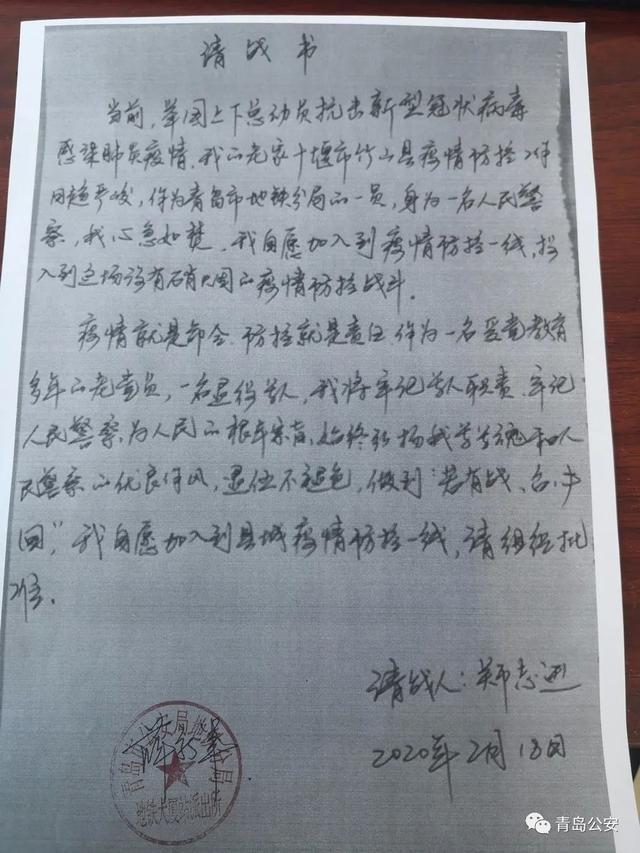 请战书
当前，举国上下总动员抗击新型冠状病毒
感染肺炎疫情，我的老家十堰市竹山县疫情防控工作
日趋严峻，作为青岛市地铁分局的一员，身为一名人民警
察，我心急如焚，我自愿加入到疫情防控一线，投
入到这场没有硝烟的疫情防控战斗。
疫情就是命令，防控就是责任，作为一名受党教育
多年的老党员，一名退役军人，我将牢记军人职责，牢记
人民警察为人民的根本宗旨，始终弘扬我军军魂和人
民警察的优良作风，退伍不褪色，做到“若有战、召必
回”，我自愿加入到县城疫情防控一线，请组织批
准。
请战人：郑志
2020年2月18日
青岛 公安局 分局
地铁大厦站派出所
青岛公安